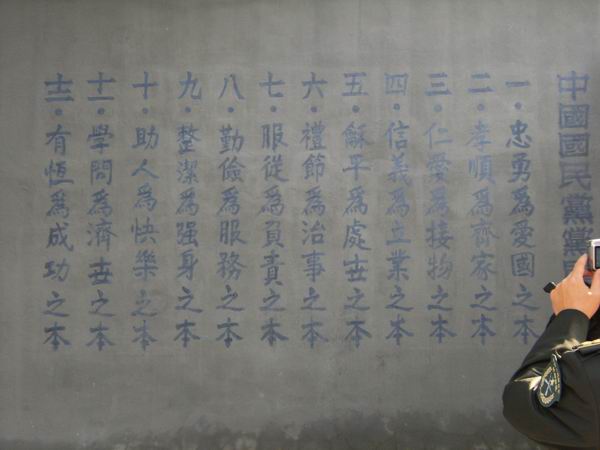 中國國民黨黨
一·忠勇為愛國之本
二·孝順為齊家之本
三·仁愛為接物之本
四·信義為立業之本
五·龢平為處世之本
六·禮節為治事之本
七·服從為負責之本
八·勤儉為服務之本
九·整潔為强身之本
十·助人為快樂之本
十一·學問為濟世之本
十二·有恆為成功之本